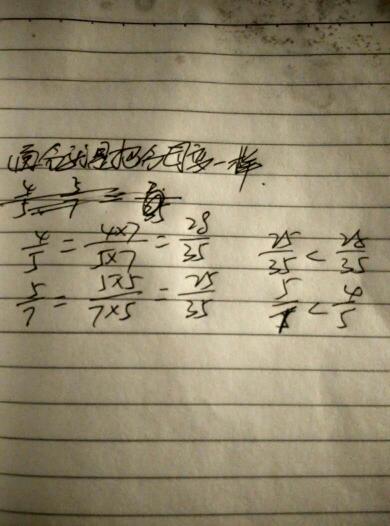 通分就是把分母变一样.
4/5 = 4×7/5×7 = 28/35
25/35 < 28/35
5/7 = 5×5/7×5 = 25/35
5/7 < 4/5